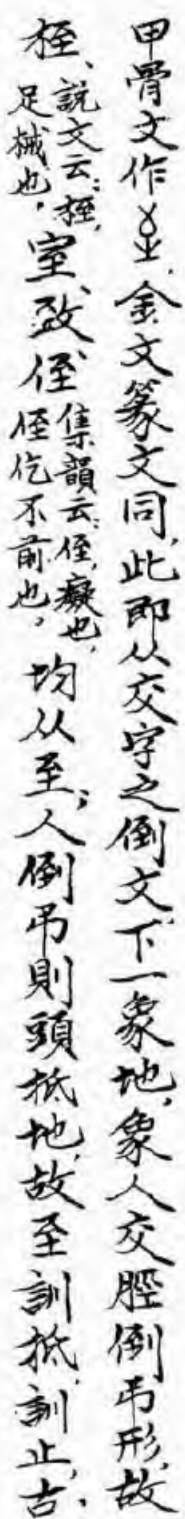 甲骨文作𦤳,金文篆文同,此即从交字之倒文下一象地,象人交脛倒吊形,故
桎、說文云:桎,足械也,室、致、侄集韻云:侄,癡也,侄仡不前也,均从至;人倒吊則頭抵地,故至訓抵,訓止,古,